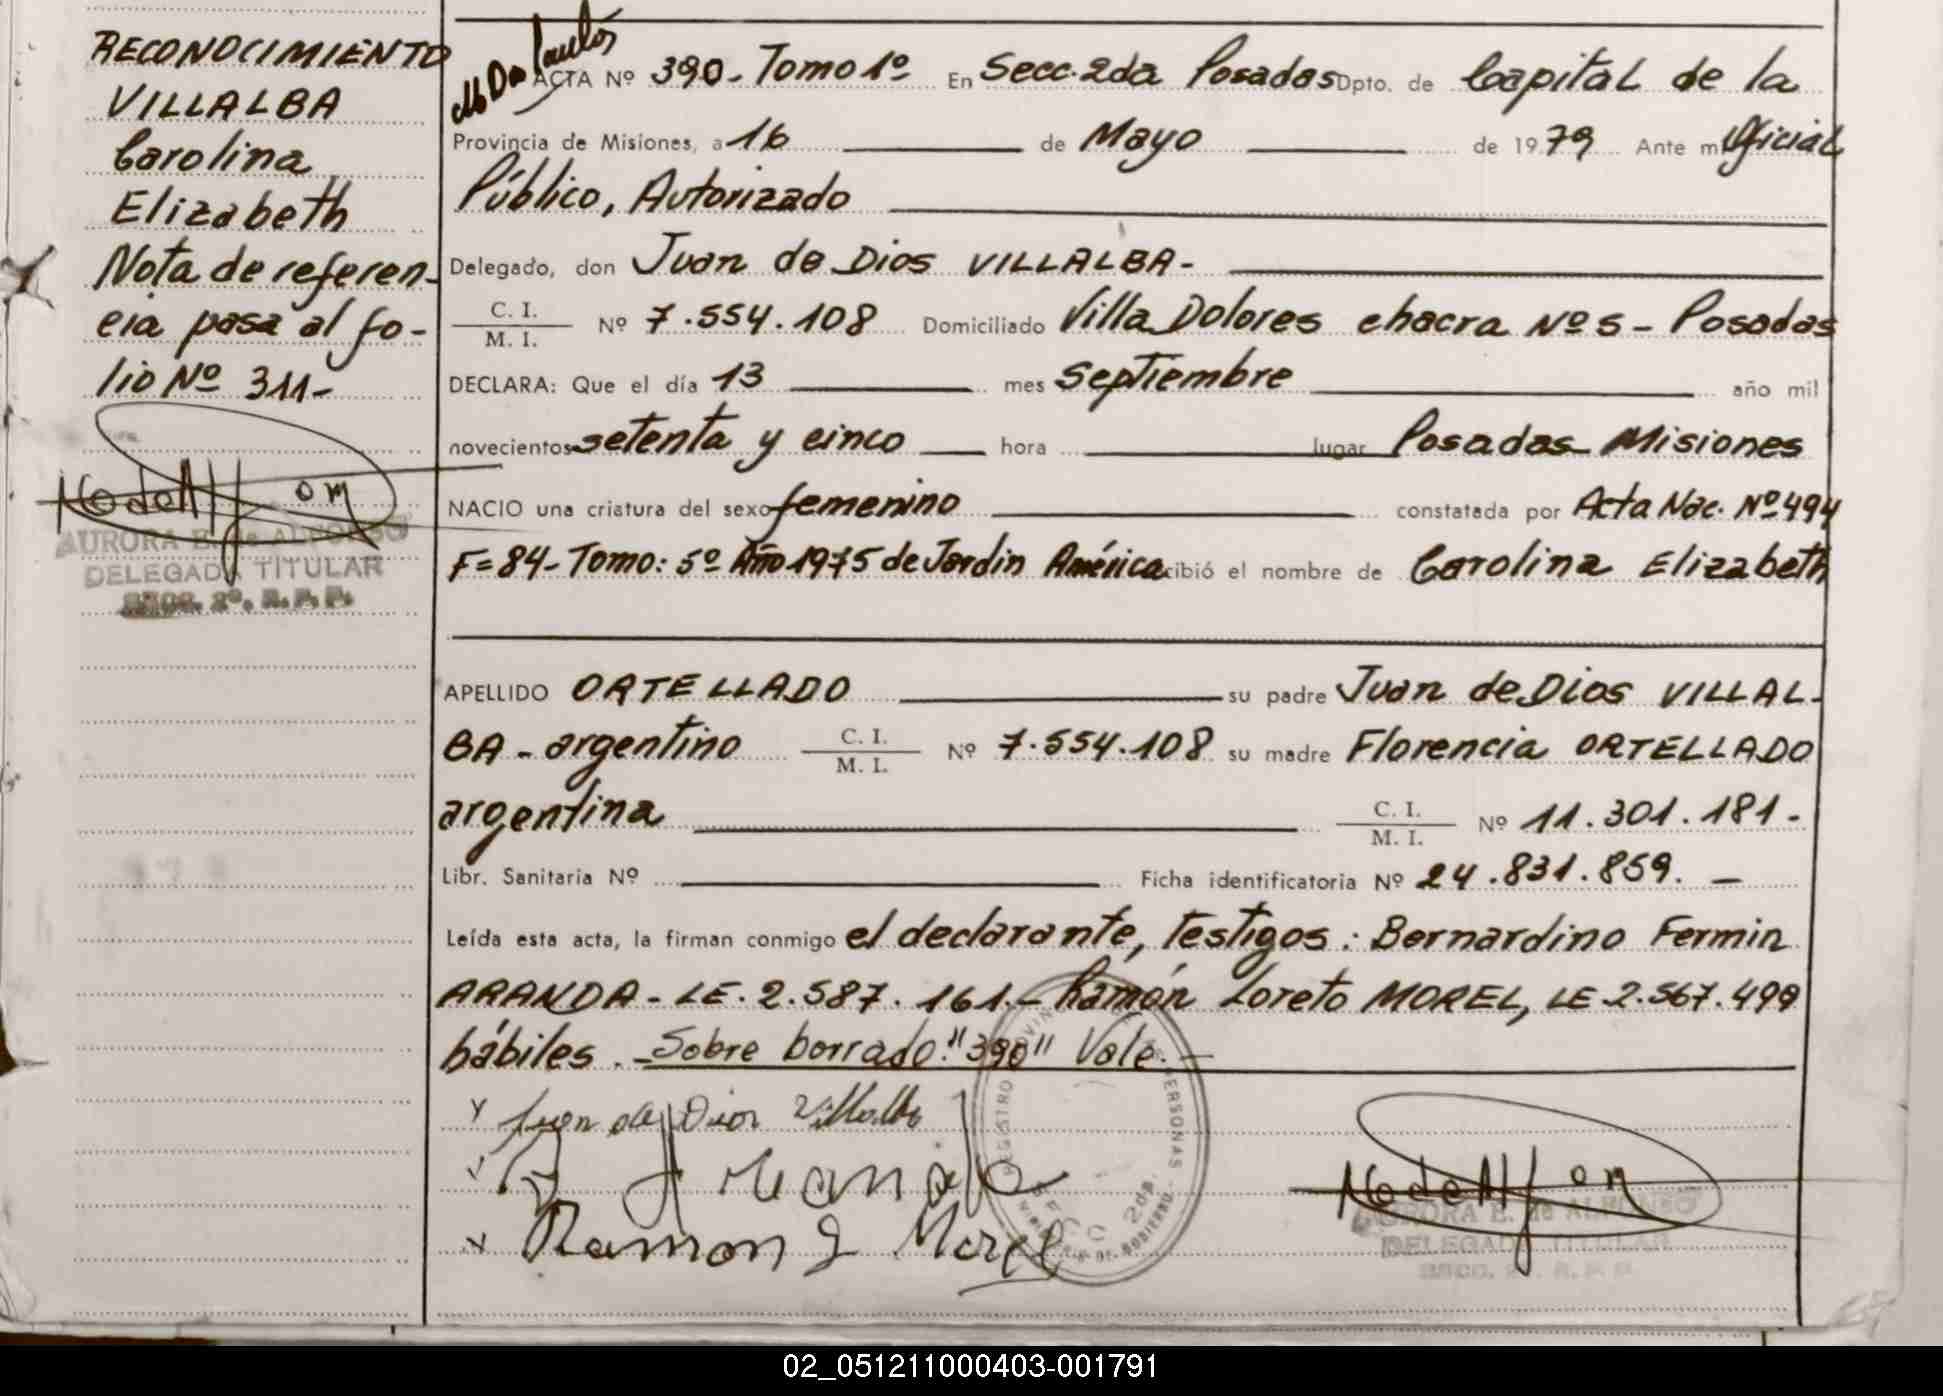 RECONOCIMIENTO
VILLALBA
Carolina
Elizabeth
Nota de referen-
cia pasa al fo-
lio Nº 311-
AURORA E. de ALFONSO
DELEGADA TITULAR
SECC. 2ª. R. P. P.
ACTA Nº 390- Tomo 1º En Secc. 2da Posadas Dpto. de Capital de la
Provincia de Misiones, a 16 de Mayo de 1979 Ante mi Oficial
Público, Autorizado
Delegado, don Juan de Dios VILLALBA-
C. I.
M. I. Nº 7.554.108 Domiciliado Villa Dolores chacra Nº 5- Posadas
DECLARA: Que el día 13 mes Septiembre año mil
novecientos setenta y cinco hora lugar Posadas Misiones
NACIO una criatura del sexo femenino constatada por Acta Nac. Nº 494
F=84- Tomo: 5º Año 1975 de Jardin América cibió el nombre de Carolina Elizabeth
APELLIDO ORTELLADO su padre Juan de Dios VILLAL-
BA- argentino C. I.
M. I. Nº 7.554.108 su madre Florencia ORTELLADO
argentina C. I.
M. I. Nº 11.301.181-
Libr. Sanitaria Nº Ficha identificatoria Nº 24.831.859.-
Leída esta acta, la firman conmigo el declarante, testigos: Bernardino Fermin
ARANDA- LE. 2.587.161.- Ramón Loreto MOREL, LE 2.567.499
hábiles.- Sobre borrado: "390" Vale.-
Juan de Dios Villalba
Ramon L Morel
AURORA E. de ALFONSO
DELEGADA TITULAR
SECC. 2ª. R. P. P.
02_051211000403-001791